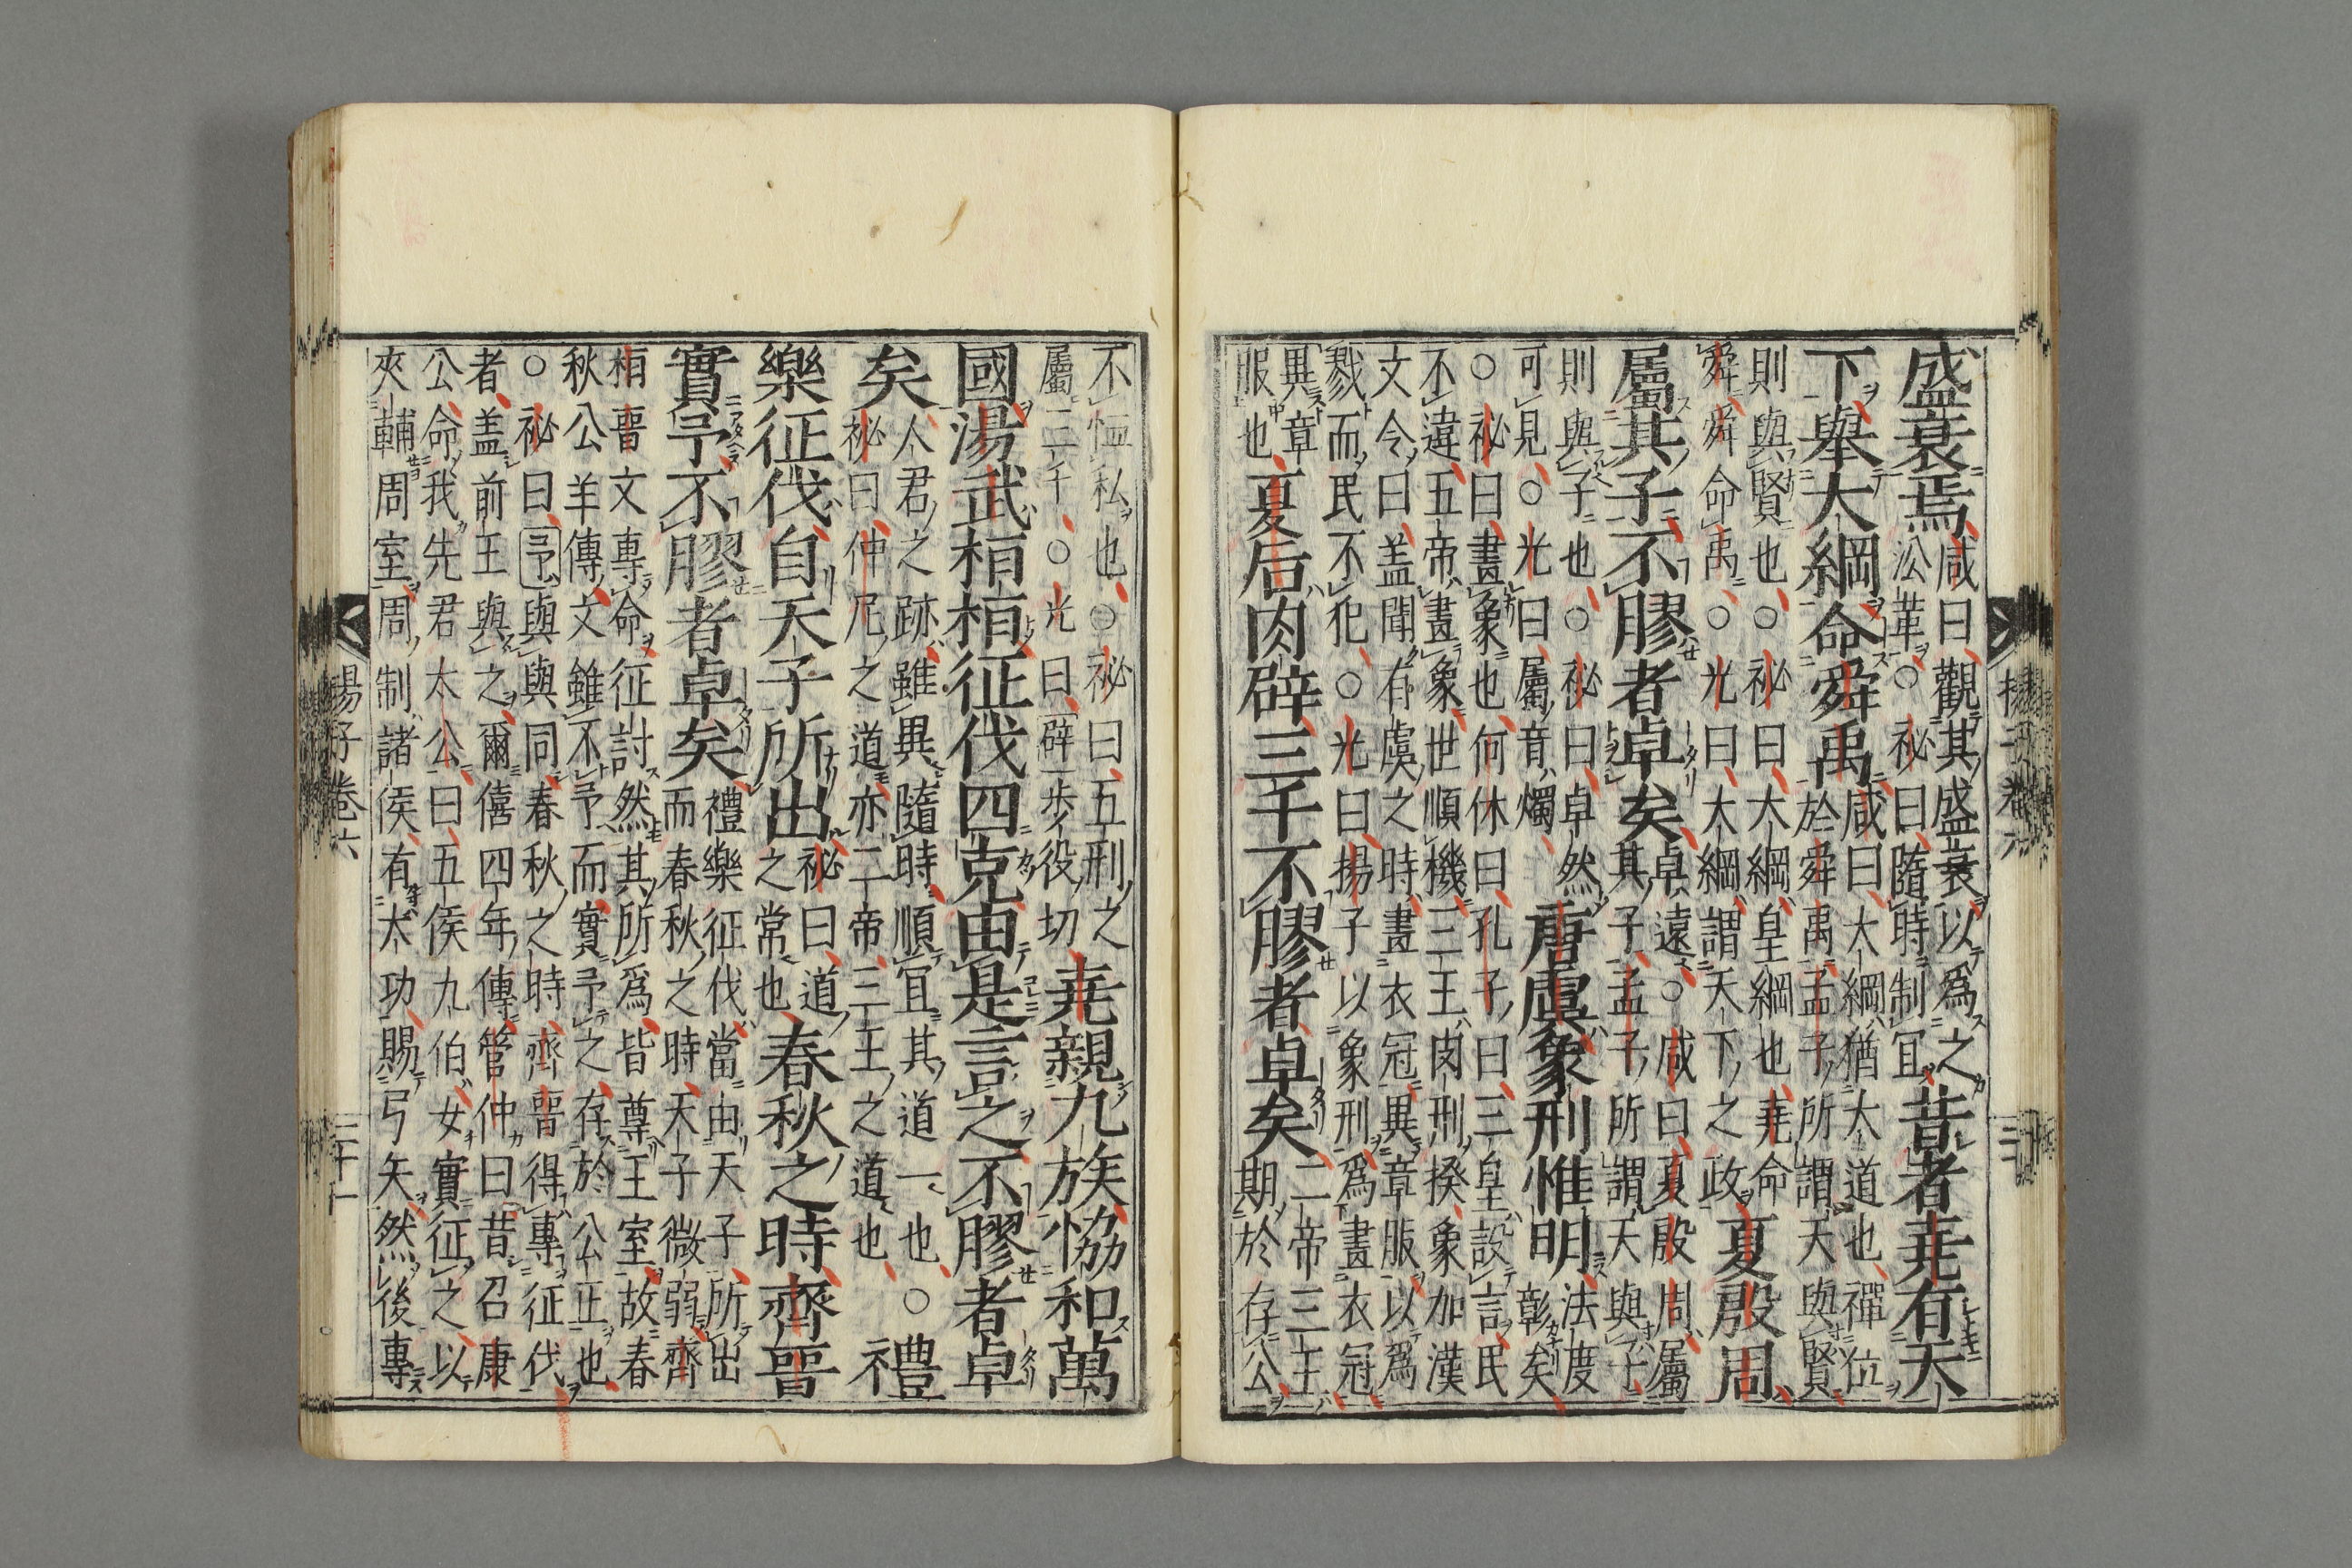 盛衰焉咸曰觀其盛衰以爲之
㳂革○祕曰隨時制宜昔者堯有天
下擧大綱命舜禹咸曰大綱猶大道也禪位
於舜禹孟子所謂天與賢
則與賢也○祕曰大綱皇綱也堯命
舜舜命禹○光曰大綱謂天下之政夏殷周
屬其子不膠者卓矣卓遠○咸曰夏殷周屬
其子孟子所謂天與子
則與子也○祕曰卓然
可見○光曰屬音燭唐虞象刑惟明法度
彰矣
○祕曰畫象也何休曰孔子曰三皇設言民
不違五帝畫象世順機三王肉刑揆象加漢
文令曰盖聞有虞之時畫衣冠異章服以爲
戮而民不犯○光曰揚子以象刑爲畫衣冠
異章
服也夏后肉辟三千不膠者卓矣二帝三王
期於存公
揚子卷六
不恤私也○祕曰五刑之
屬三千○光曰辟步役切堯親九族恊和萬
國湯武桓桓征伐四克由是言之不膠者卓
矣人君之跡雖異隨時順宜其道一也○
祕曰仲尼之道亦二帝三王之道也禮
樂征伐自天子所出祕曰道
之常也春秋之時齊晉
實予不膠者卓矣禮樂征伐當由天子所出
而春秋之時天子微弱齊
桓晉文專命征討然其所爲皆尊王室故春
秋公羊傳文雖不予而實予之存於公正也
○祕曰予與與同春秋之時齊晉得專征伐
者盖前王與之爾僖四年傳管仲曰昔召康
公命我先君太公曰五侯九伯女實征之以
夾輔周室周制諸侯有太功賜弓矢然後專
揚子卷六 二十一